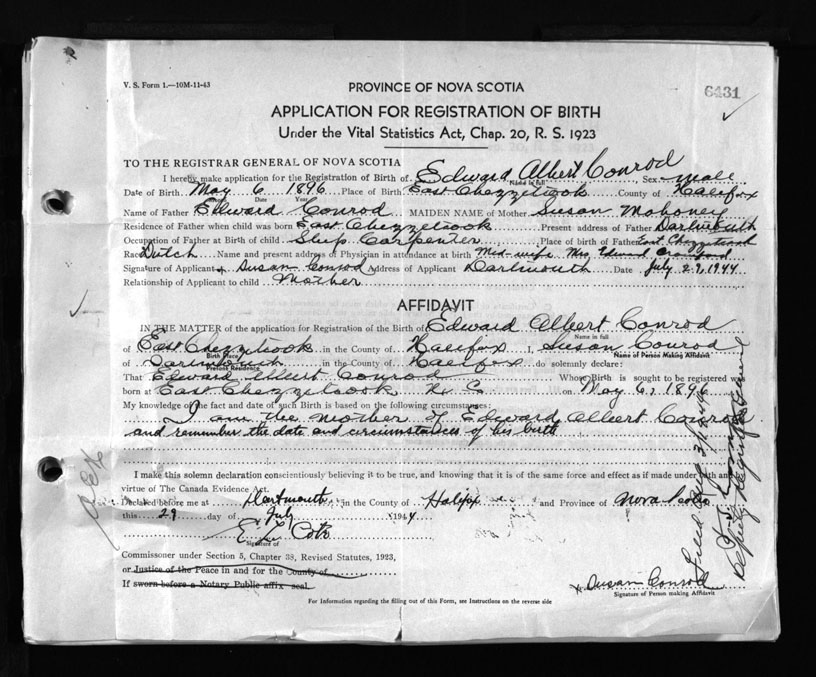 V. S. Form 1.—10M-11-43
PROVINCE OF NOVA SCOTIA
6431
APPLICATION FOR REGISTRATION OF BIRTH
Under the Vital Statistics Act, Chap. 20, R. S. 1923
TO THE REGISTRAR GENERAL OF NOVA SCOTIA
I hereby make application for the Registration of Birth of Edward Albert Conrod, Sex male
Name in full
Date of Birth May 6 1896 Place of Birth East Chezzetcook County of Halifax
Month Date Year
Name of Father Edward Conrod MAIDEN NAME of Mother Susan Mahoney
Residence of Father when child was born East Chezzetcook Present address of Father Dartmouth
Occupation of Father at Birth of child Ship Carpenter Place of birth of Father East Chezzetcook
Race Dutch Name and present address of Physician in attendance at birth Mid-wife Mrs. Edward
Signature of Applicant x Susan Conrod Address of Applicant Dartmouth Date July 29, 1944
Relationship of Applicant to child Mother
AFFIDAVIT
IN THE MATTER of the application for Registration of the Birth of Edward Albert Conrod
Name in full
of East Chezzetcook in the County of Halifax I, Susan Conrod
Birth Place
Name of Person Making Affidavit
of Dartmouth in the County of Halifax do solemnly declare:
Present Residence
That Edward Albert Conrod Whose Birth is sought to be registered was
born at East Chezzetcook N. S. on May 6, 1896
My knowledge of the fact and date of such Birth is based on the following circumstances:
I am the mother of Edward Albert Conrod
and remember the date and circumstances of his birth
I make this solemn declaration conscientiously believing it to be true, and knowing that it is of the same force and effect as if made under oath and
virtue of The Canada Evidence Act.
Declared before me at Dartmouth in the County of Halifax and Province of Nova Scotia
this 29 day of July 1944
Signature of
Commissoner under Section 5, Chapter 38, Revised Statutes, 1923,
or Justice of the Peace in and for the County of
If sworn before a Notary Public affix seal
x Susan Conrod
Signature of Person making Affidavit
For Information regarding the filling out of this Form, see Instructions on the reverse side
Deputy Registrar General